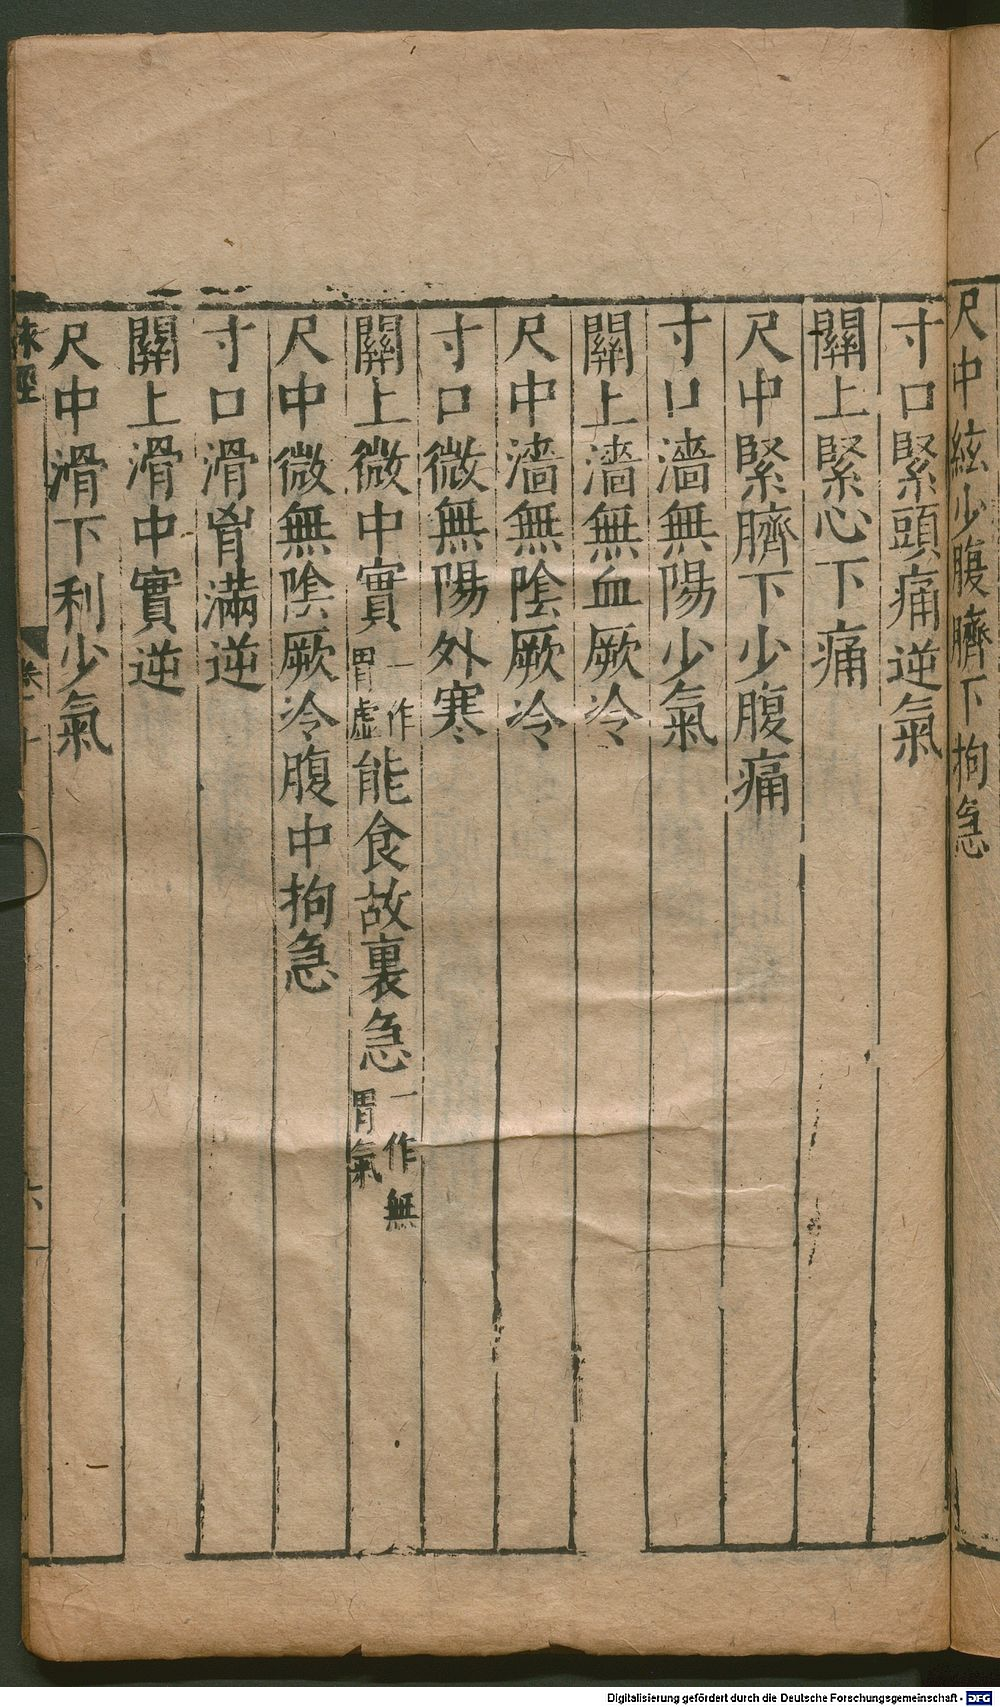 尺中絃少腹臍下拘急
寸口緊頭痛逆氣
關上緊心下痛
尺中緊臍下少腹痛
寸口濇無陽少氣
關上濇無血厥冷
尺中濇無陰厥冷
寸口微無陽外寒
關上微中實一作胃虛能食故裏急一作無胃氣
尺中微無陰厥冷腹中拘急
寸口滑胷滿逆
關上滑中實逆
尺中滑下利少氣
脉經
卷十
六
Digitalisierung gefördert durch die Deutsche Forschungsgemeinschaft - DFG